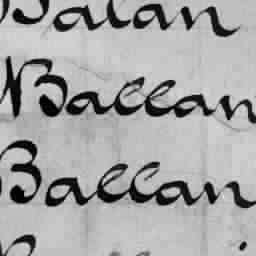 Balan
Ballan
Ballan